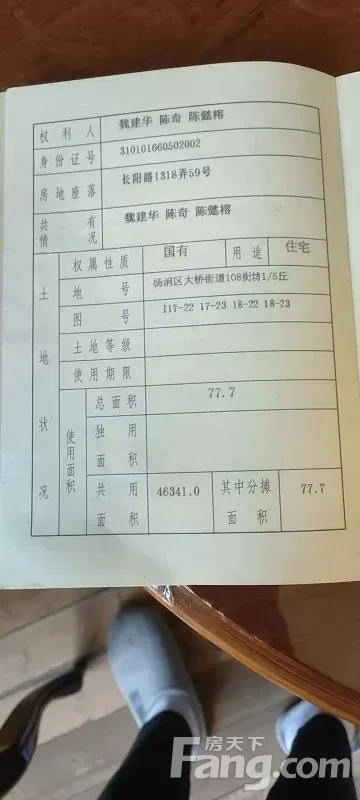 权利人 魏建华 陈奇 陈懿榕
身份证号 310101660502002
房地座落 长阳路1318弄59号
共有情况 魏建华 陈奇 陈懿榕
土地状况
权属性质 国有 用途 住宅
地号 杨浦区大桥街道108街坊1/5丘
图号 I17-22 17-23 18-22 18-23
土地等级
使用期限
使用面积
总面积 77.7
独用面积
共用面积 46341.0 其中分摊面积 77.7
房天下
Fang.com